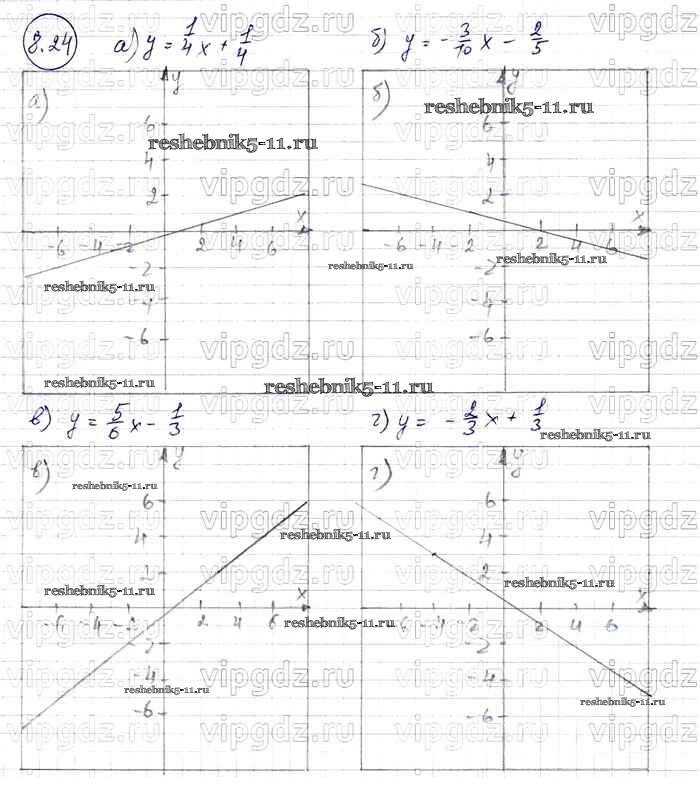 8.24 а) y = 1/4 x + 1/4 б) y = - 3/10 x - 2/5
а) y б) y
6 6
4 4
2 2
x x
-6 -4 -2 2 4 6 -6 -4 -2 2 4 6
-2 -2
-4 -4
-6 -6
в) y = 5/6 x - 1/3 г) y = - 2/3 x + 1/3
в) y г) y
6 6
4 4
2 2
x x
-6 -4 -2 2 4 6 -6 -4 -2 2 4 6
-2 -2
-4 -4
-6 -6
vipgdz.ru
reshebnik5-11.ru